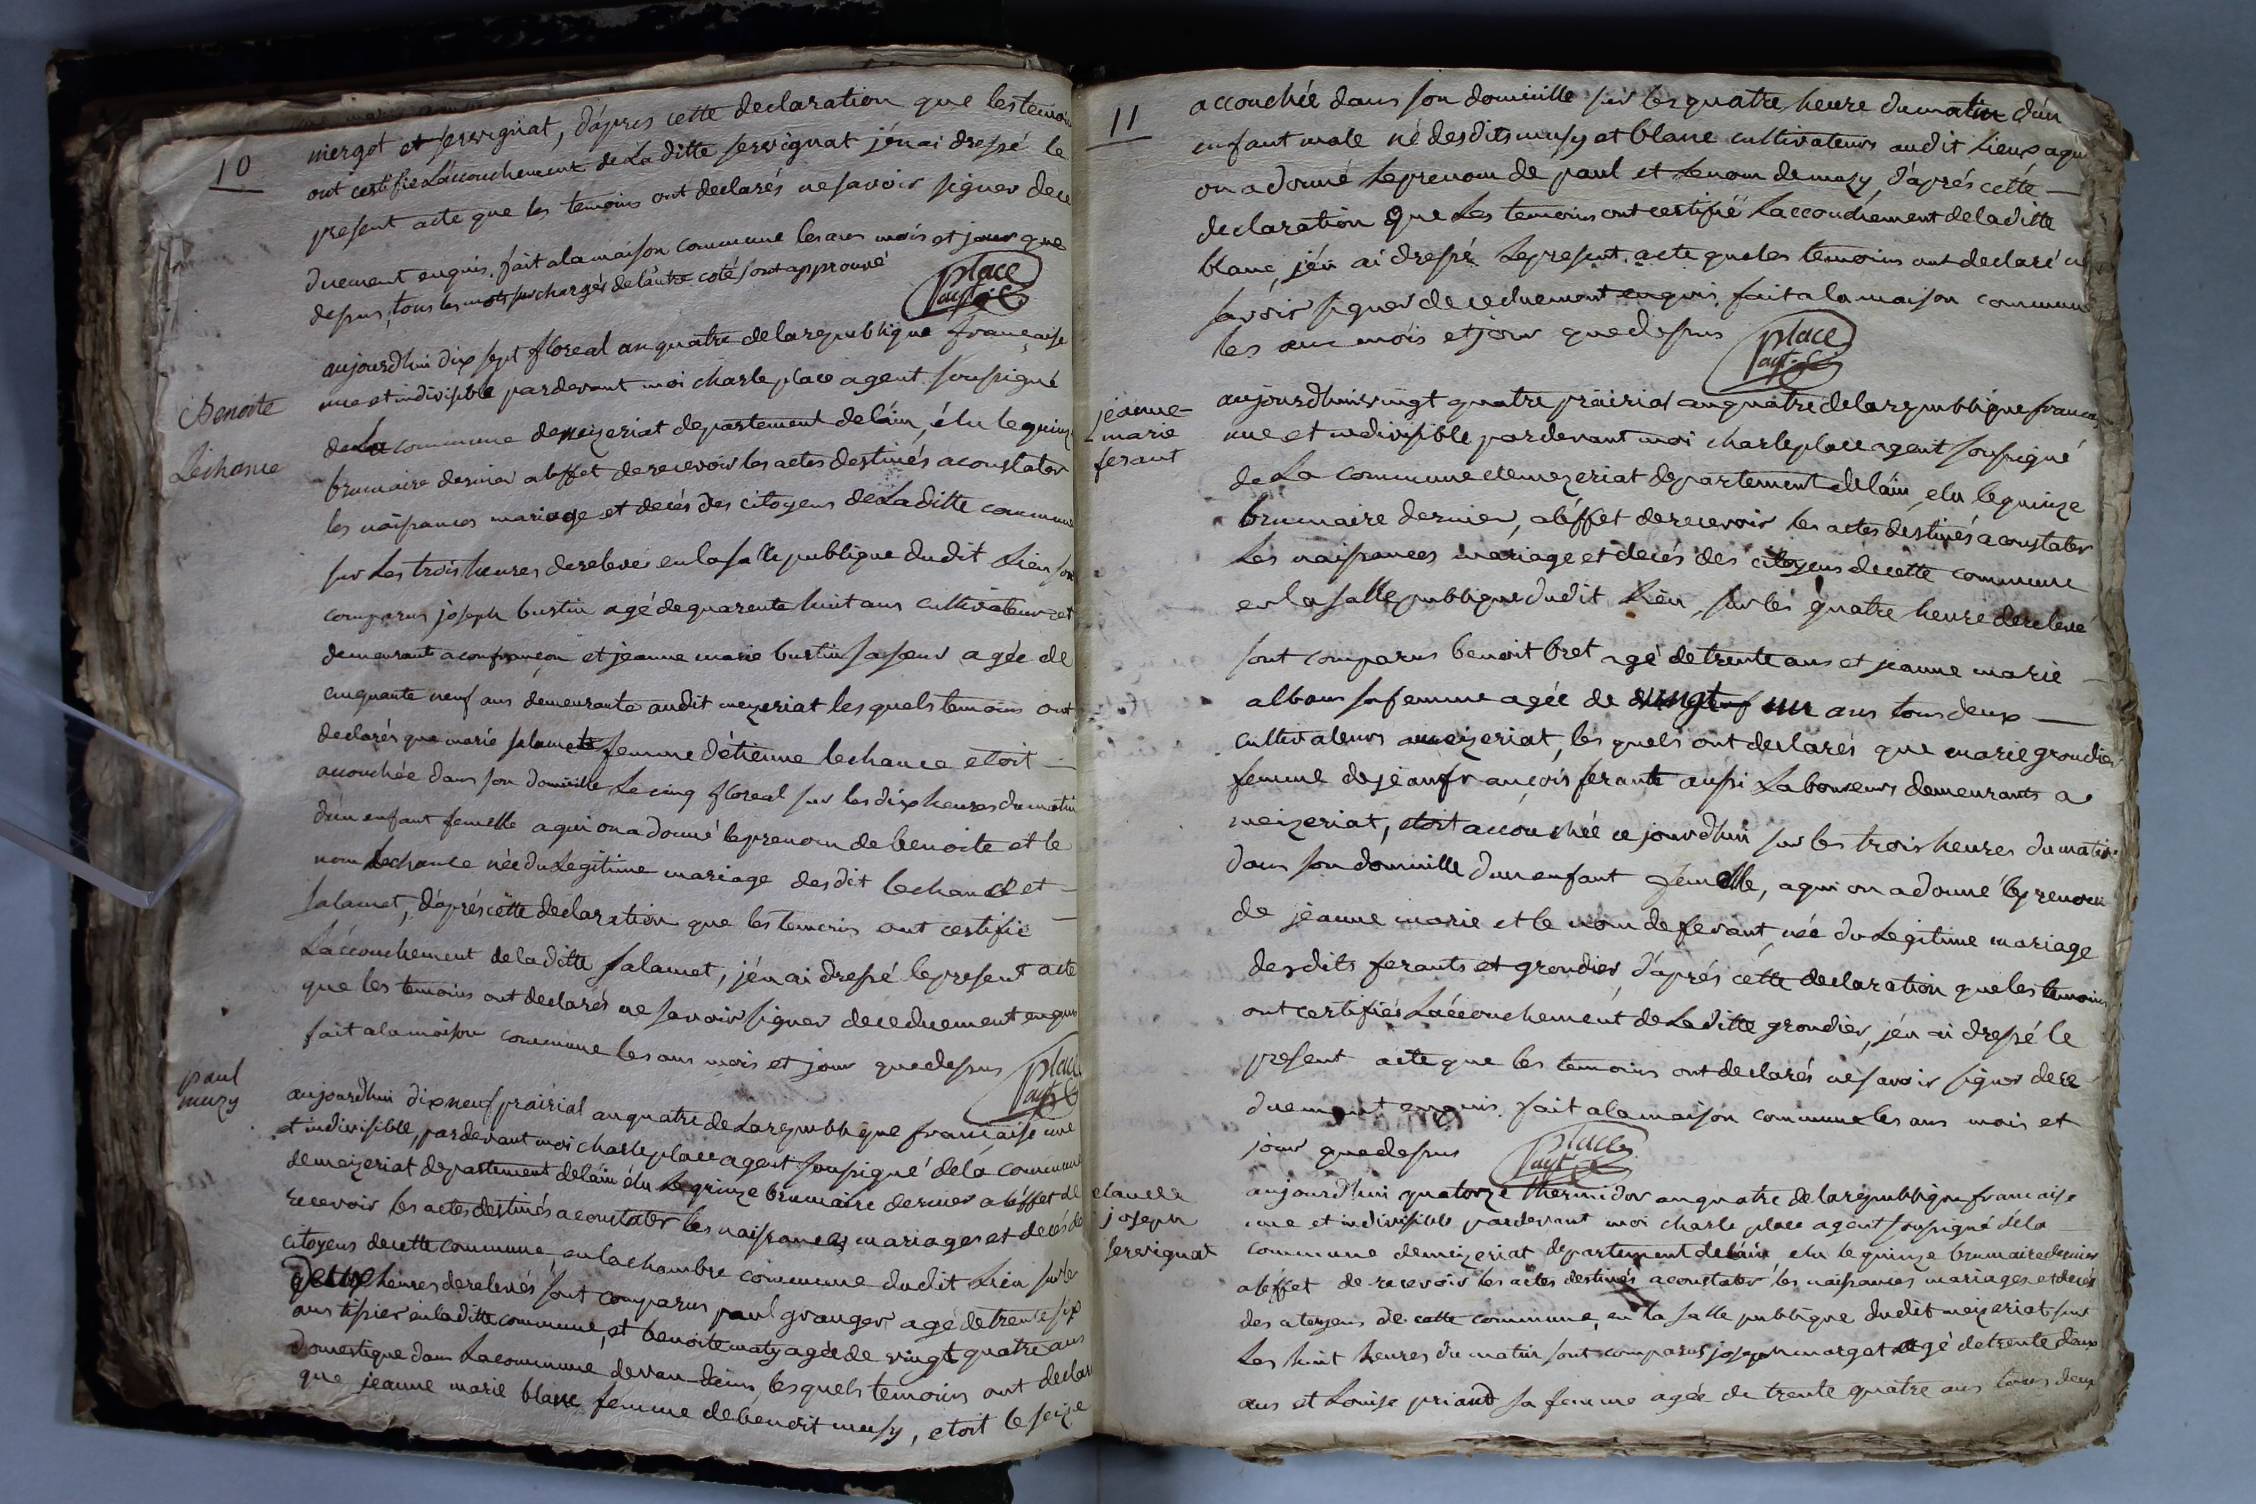 10
mergot et servignat, d'aprés cette declaration que les temoin
ont certifie Laccouchement de La ditte servignat jén ai dressé le
present acte que les temoins ont declarés ne savoir signer de ce
duement enquis. fait a la maison commune les ans mois et jour que
dessus, tous les mots surchargés de láutre coté sont approuvé
place
agt
Benoite
Lechance
aujourdhui dix sept floreal an quatre de la republique française
une et indivisible pardevant moi charle place agent soussigné
de La commune de meizeriat departement de láin, élu le quinze
brumaire dernier a leffet de recevoir les actes destinés a constater
les naissances mariage et decés des citoyens de La ditte commune
sur Les trois heures de relevée en la salle publique du dit Lieu sont
comparus joseph bustin agé de quarente huit ans cultivateur et
demeurant a confrançon et jeanne marie bustin sa soeur agée de
cinquante neuf ans demeurante audit mezeriat les quels temoins ont
declarés que marie salamet femme détienne lechance etoit
accouchée dans son domicille Le cinq floreal sur les dix heures du matin
dún enfant femelle a qui on a donné le prenom de benoite et le
nom Lechance née du Legitime mariage des dit lechance et
salamet, d'aprés cette declaration que les temoins ont certifié
Láccouchement de la ditte salamet, jén ai dressé le present acte
que les temoins ont declarés ne savoir signer de ce duement enquis
fait a la maison commune les ans mois et jour que dessus
place
agt
paul
muzy
aujourdhui dix neuf prairial an quatre de La republique française une
et indivisible, pardevant moi charle place agent soussigné de la commune
de meizeriat departement de lain élu Le quinze brumaire dernier a léffet de
recevoir les actes destinés a constater les naissances mariages et decés de
citoyens de cette commune, en la chambre commune du dit Lieu sur les
deux heures de relevés sont comparus paul granger agé de trente six
ans tissier en la ditte commune, et benoite maty agée de vingt quatre ans
domestique dans La commune de vandeins, les quels temoins ont declaré
que jeanne marie blanc femme de benoit musy, etoit le seize
11
accouchée dans son domicille sur les quatre heure du matin dún
enfant male né des dits musy et blanc cultivateurs au dit Lieux a qui
on a donné le prenom de paul et le nom de muzy, d'aprés cette
declaration Que Les temoins ont certifié Laccouchement de la ditte
blanc, jén ai dressé Le present acte que les temoins ont declaré ne
savoir signer de ce duement enquis, fait a la maison commune
les ans mois et jour que dessus
place
agt
jeanne
marie
ferant
aujourdhui vingt quatre prairial an quatre de la republique francaise
une et indivisible pardevant moi charle place agent soussigné
de La commune de mezeriat departement de láin, elu le quinze
brumaire dernier, a léffet de recevoir les actes destinés a constater
Les naissances mariage et decés des citoyens de cette commune
en la salle publique du dit Lieu, sur les quatre heure de relevé
sont comparus benoit bret agé de trente ans et jeanne marie
alban sa femme agée de vingt un ans tous deux
cultivateurs a meizeriat, les quels ont declarés que marie grondier
femme de jean françois ferant aussi Laboureurs demeurants a
meizeriat, etoit accouchée ce jourdhui sur les trois heures du matin
dans son domicille dun enfant femelle, a qui on a donné le prenom
de jeanne marie et le nom de ferant, née du Legitime mariage
des dits ferants et grondier, d'aprés cette declaration que les temoins
ont certifiés Láccouchement de La ditte grondier, jén ai dressé le
present acte que les temoins ont declarés ne savoir signer de ce
duement enquis. fait a la maison commune les ans mois et
jour que dessus
place
agt
claude
joseph
servignat
aujourdhui quatorze thermidor an quatre de la republique francaise
une et indivisible pardevant moi charle place agent soussigné de la
commune de meizeriat departement de láin elu le quinze brumaire dernier
a léffet de recevoir les actes destinés a constater les naissances mariages et decés
des citoyens de cette commune, en la salle publique du dit meizeriat sur
Les huit heures du matin sont comparus joseph margat agé de trente deux
ans et Louise priand sa femme agée de trente quatre ans tous deux